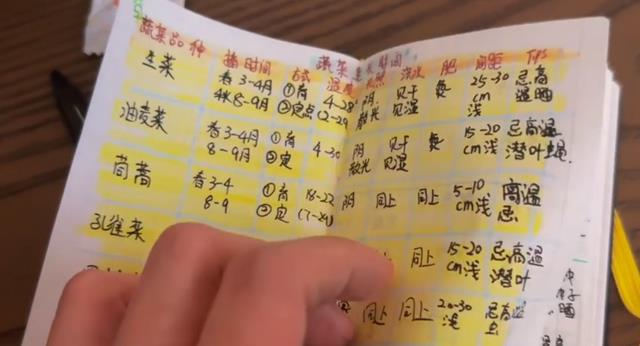 蔬菜品种 播时间 方式 温度 光照 浇水 肥 间距 TPS
生菜 春3-4月 ①苗 4-28 阴 见干 25-30 忌高
秋8-9月 ②定点 12-29 散光 见湿 cm 温晒
浅
油麦菜 春3-4月 ①苗 4-30 阴 见干 15-20 忌高温
8-9月 ②定 散光 见湿 cm浅 潜叶蝇
茼蒿 春3-4 ①苗 18-22 阴 同上 同上 5-10 高温
8-9 ②定 cm浅 忌
孔雀菜 同上 15-20 忌高温
cm浅 潜叶
同上 同上 20-30 忌高温
浅